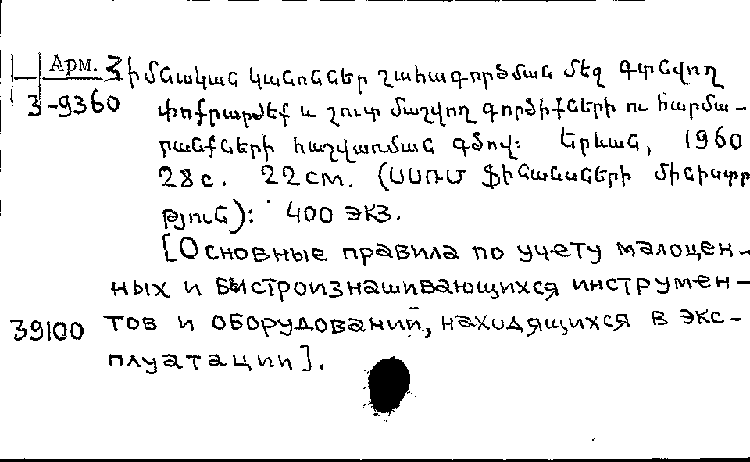 Арм. Հիմնական կանոններ շահագործման մեջ գտնվող
3-9360 փոքրարժեք և շուտ մաշվող գործիքների ու հարմա-
րանքների հաշվառման գծով: Երևան, 1960
28 с. 22 см. (ՍՍՌՄ Ֆինանսների մինիստր
թյուն): 400 экз.
[Основные правила по учету малоцен-
ных и быстроизнашивающихся инструмен-
39100 тов и оборудований, находящихся в экс-
плуатации].